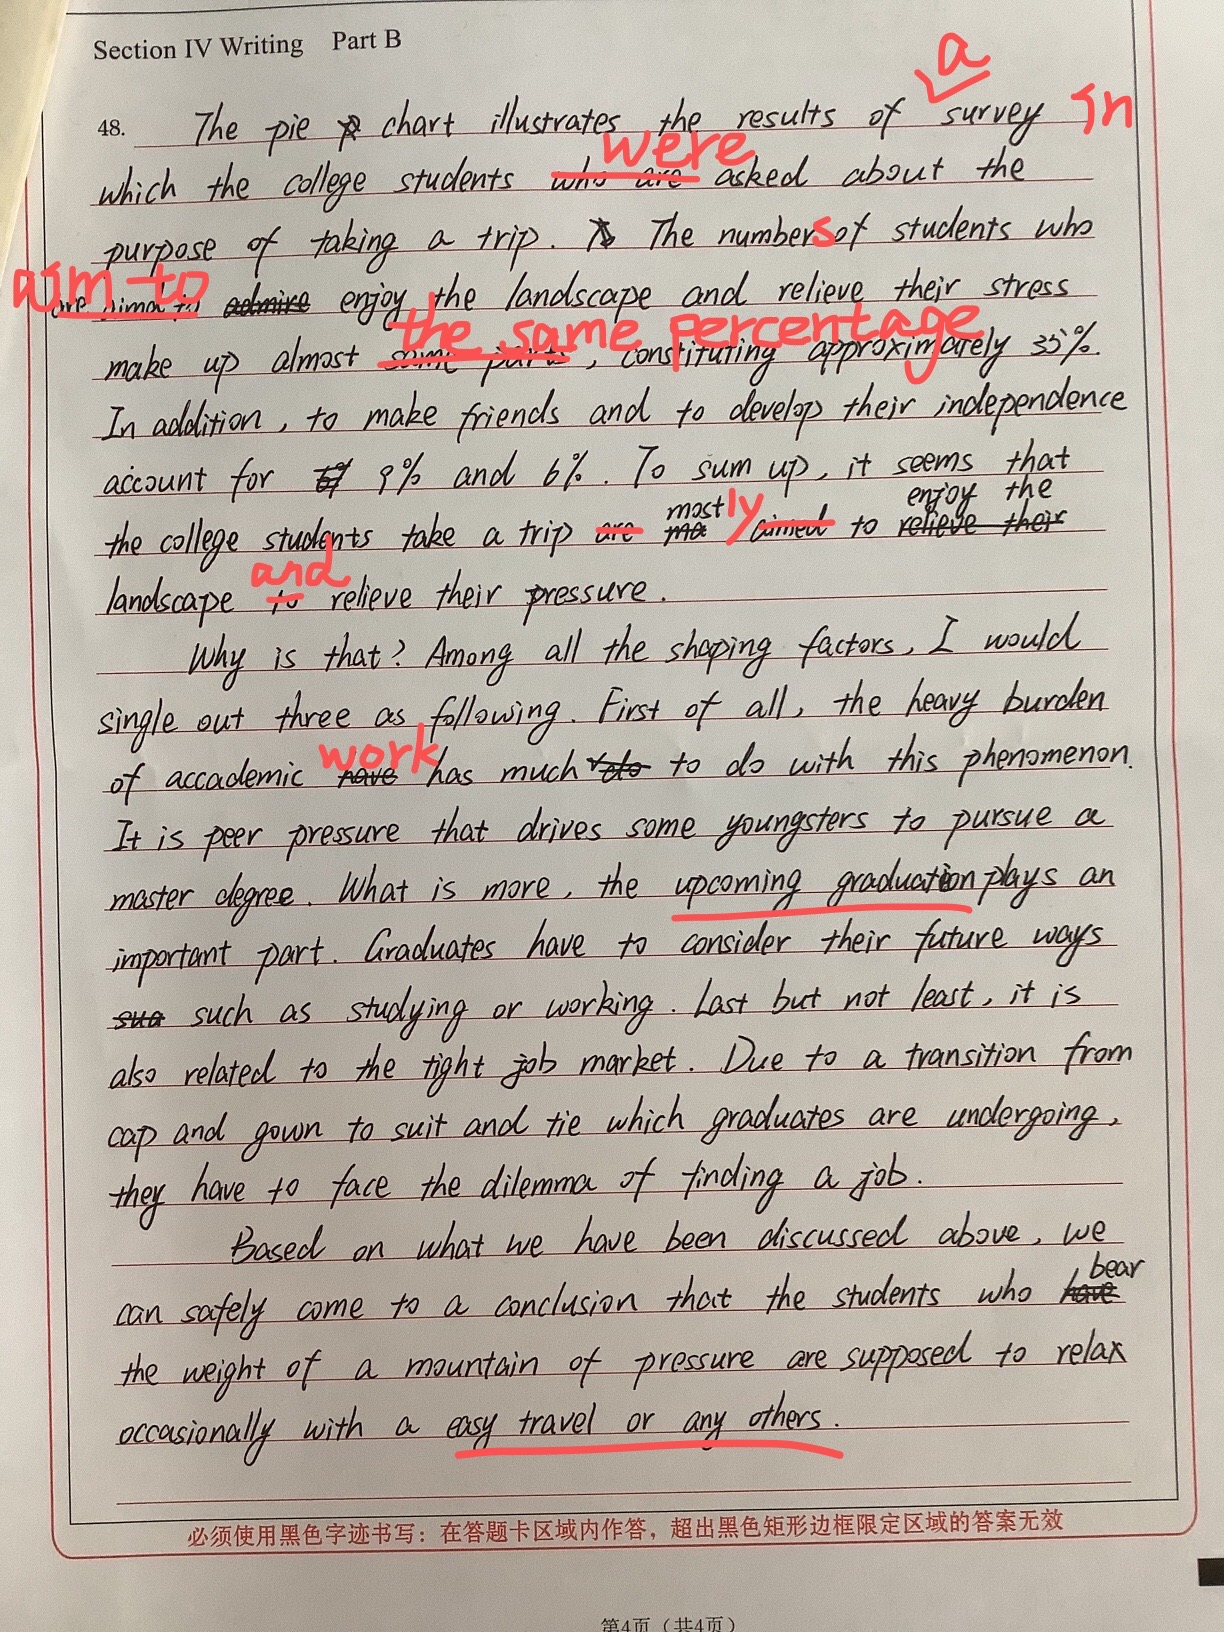 Section IV Writing Part B
a
48. The pie chart illustrates the results of survey In
were
which the college students who are asked about the
purpose of taking a trip. The numbers of students who
aim to
are aimed to admire enjoy the landscape and relieve their stress
the same percentage
make up almost same parts, constituting approximately 35%.
In addition, to make friends and to develop their independence
account for 9% and 6%. To sum up, it seems that
mostly enjoy the
the college students take a trip are ma aimed to relieve their
and
landscape to relieve their pressure.
Why is that? Among all the shaping factors, I would
single out three as following. First of all, the heavy burden
work
of accademic have has much do to do with this phenomenon.
It is peer pressure that drives some youngsters to pursue a
master degree. What is more, the upcoming graduation plays an
important part. Graduates have to consider their future ways
sua such as studying or working. Last but not least, it is
also related to the tight job market. Due to a transition from
cap and gown to suit and tie which graduates are undergoing,
they have to face the dilemma of finding a job.
Based on what we have been discussed above, we
bear
can safely come to a conclusion that the students who have
the weight of a mountain of pressure are supposed to relax
occasionally with a easy travel or any others.
必须使用黑色字迹书写：在答题卡区域内作答，超出黑色矩形边框限定区域的答案无效
第4页（共4页）